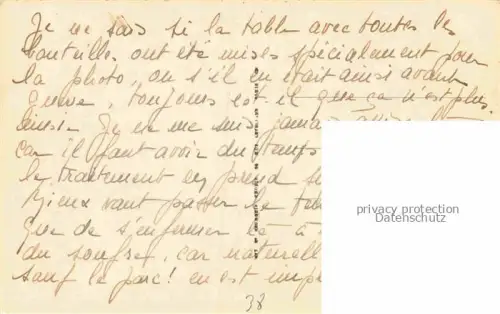 Je ne sais si la table avec toutes les
bouteilles ont été mises spécialement pour
la photo, ou s'il en était ainsi avant
guerre, toujours est-il que ça n'est plus
ainsi. Je ne me suis jamais
car il faut avoir du temps
le traitement en prend
Mieux vaut passer le
que de s'enfermer là - à
du soufre, car naturell
sauf le parc! en est imp
38
privacy protection
Datenschutz